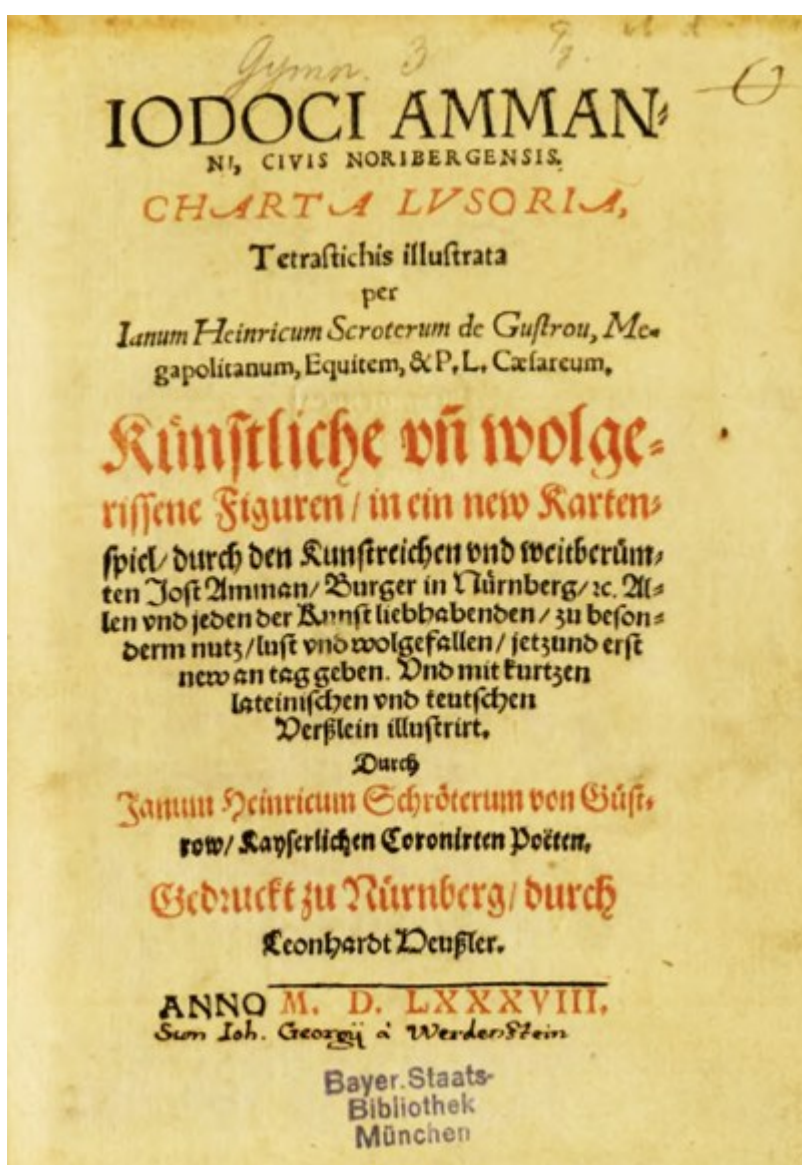 Gymn. 3
IODOCI AMMAN⸗
NI, CIVIS NORIBERGENSIS.
CHARTA LVSORIA,
Tetraſtichis illuſtrata
per
Ianum Heinricum Scroterum de Guſtrou, Me⸗
gapolitanum, Equitem, & P. L. Cæſareum.
Kuͤnſtliche vñ wolge⸗
riſſene Figuren / in ein new Karten⸗
ſpiel / durch den Kunſtreichen vnd weitberuͤm⸗
ten Joſt Amman / Burger in Nuͤrnberg / ꝛc. Al⸗
len vnd jeden der Kunſt liebhabenden / zu beſon⸗
derm nutz / luſt vnd wolgefallen / jetzund erſt
new an tag geben. Vnd mit kurtzen
lateiniſchen vnd teutſchen
Verßlein illuſtrirt.
Durch
Janum Heinricum Schroͤterum von Guͤſt⸗
row / Kayſerlichen Coronirten Poëten.
Gedruckt zu Nuͤrnberg / durch
Leonhardt Heußler.
ANNO M. D. LXXXVIII.
Sum Ioh. Georgij à Werdenſtein
Bayer. Staats-
Bibliothek
München